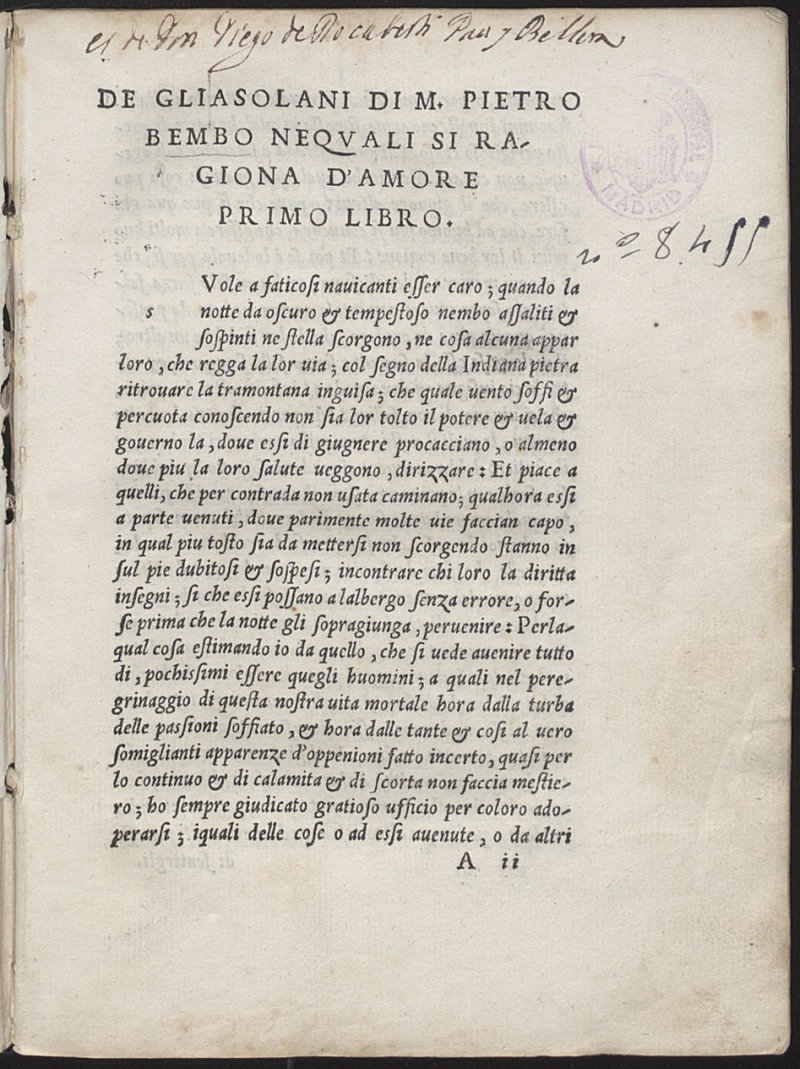 es de Don Diego de Rocaberti Pau y Bellera
DE GLIASOLANI DI M. PIETRO
BEMBO NEQVALI SI RA-
GIONA D'AMORE
PRIMO LIBRO.
MADRID
nº 8.455
Vole a faticosi nauicanti esser caro; quando la
s notte da oscuro & tempestoso nembo assaliti &
sospinti ne stella scorgono, ne cosa alcuna appar
loro, che regga la lor uia; col segno della Indiana pietra
ritrouare la tramontana inguisa; che quale uento soffi &
percuota conoscendo non sia lor tolto il potere & uela &
gouerno la, doue essi di giugnere procacciano, o almeno
doue piu la loro salute ueggono, dirizzare: Et piace a
quelli, che per contrada non usata caminano; qualhora essi
a parte uenuti, doue parimente molte uie faccian capo,
in qual piu tosto sia da mettersi non scorgendo stanno in
sul pie dubitosi & sospesi; incontrare chi loro la diritta
insegni; si che essi possano alalbergo senza errore, o for-
se prima che la notte gli sopragiunga, peruenire: Perla-
qual cosa estimando io da quello, che si uede auenire tutto
di, pochissimi essere quegli huomini; a quali nel pere-
grinaggio di questa nostra uita mortale hora dalla turba
delle passioni soffiato, & hora dalle tante & cosi al uero
somiglianti apparenze d'oppenioni fatto incerto, quasi per
lo continuo & di calamita & di scorta non faccia mestie-
ro; ho sempre giudicato gratioso ufficio per coloro ado-
perarsi; iquali delle cose o ad essi auenute, o da altri
A ii